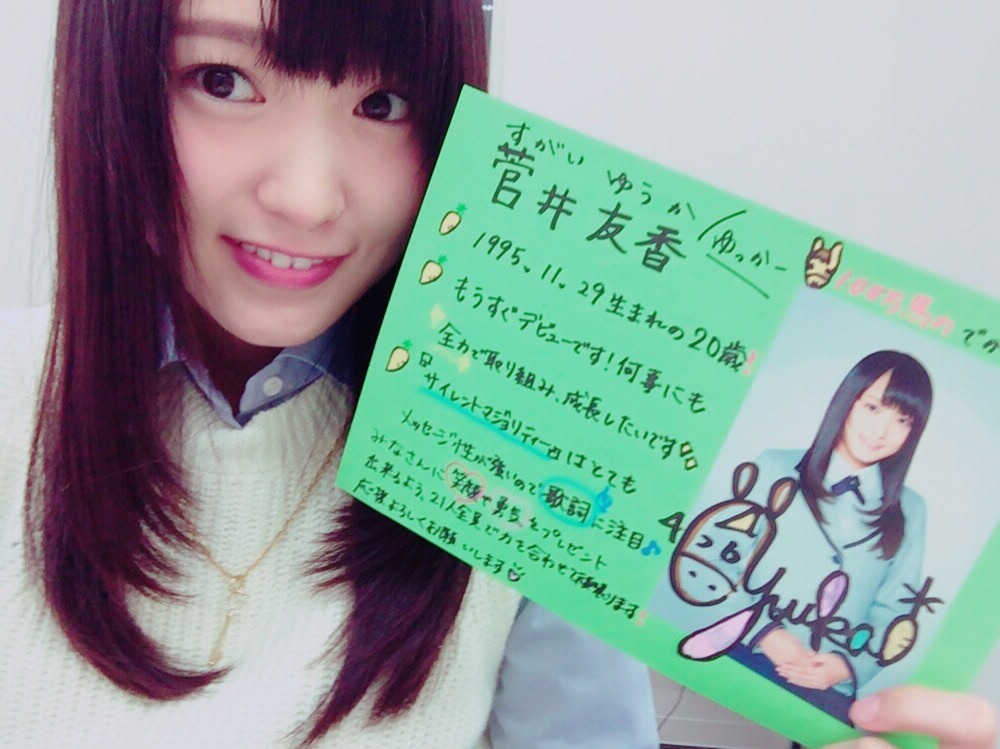 すがい ゆうか
菅井 友香 (ゆっかー
1995. 11. 29 生まれの 20歳!
もうすぐデビューです!何事にも
全力で取り組み、成長したいです
『サイレントマジョリティー』はとても
メッセージ性が強いので歌詞に注目
みなさんに笑顔や勇気をプレゼント
出来るよう、21人全員で力を合わせて頑張ります!
応援よろしくお願いします
馬の でか
Yuuka